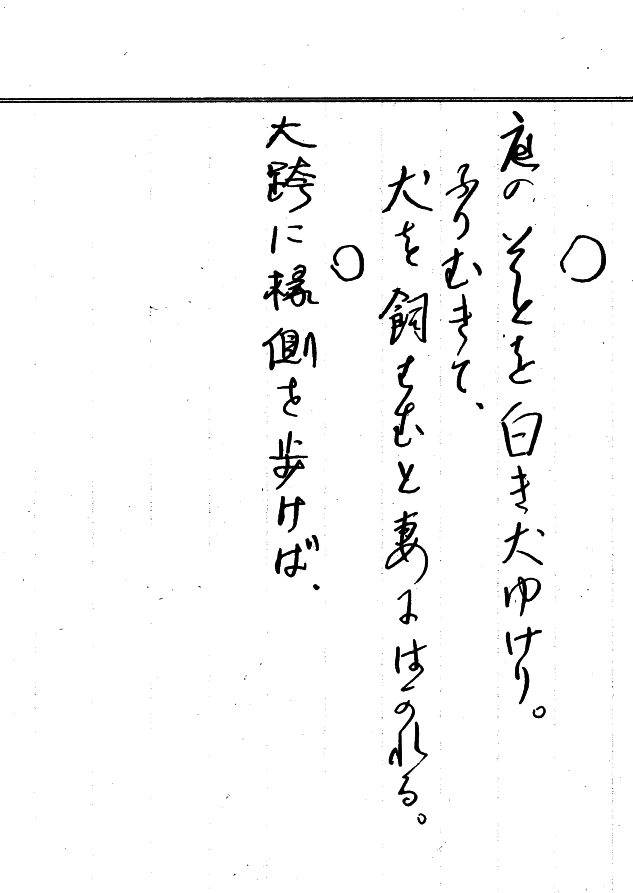 ○
庭のそとを白き犬ゆけり。
ふりむきて、
犬を飼はむと妻にはかれる。
○
大跨に椽側を歩けば、